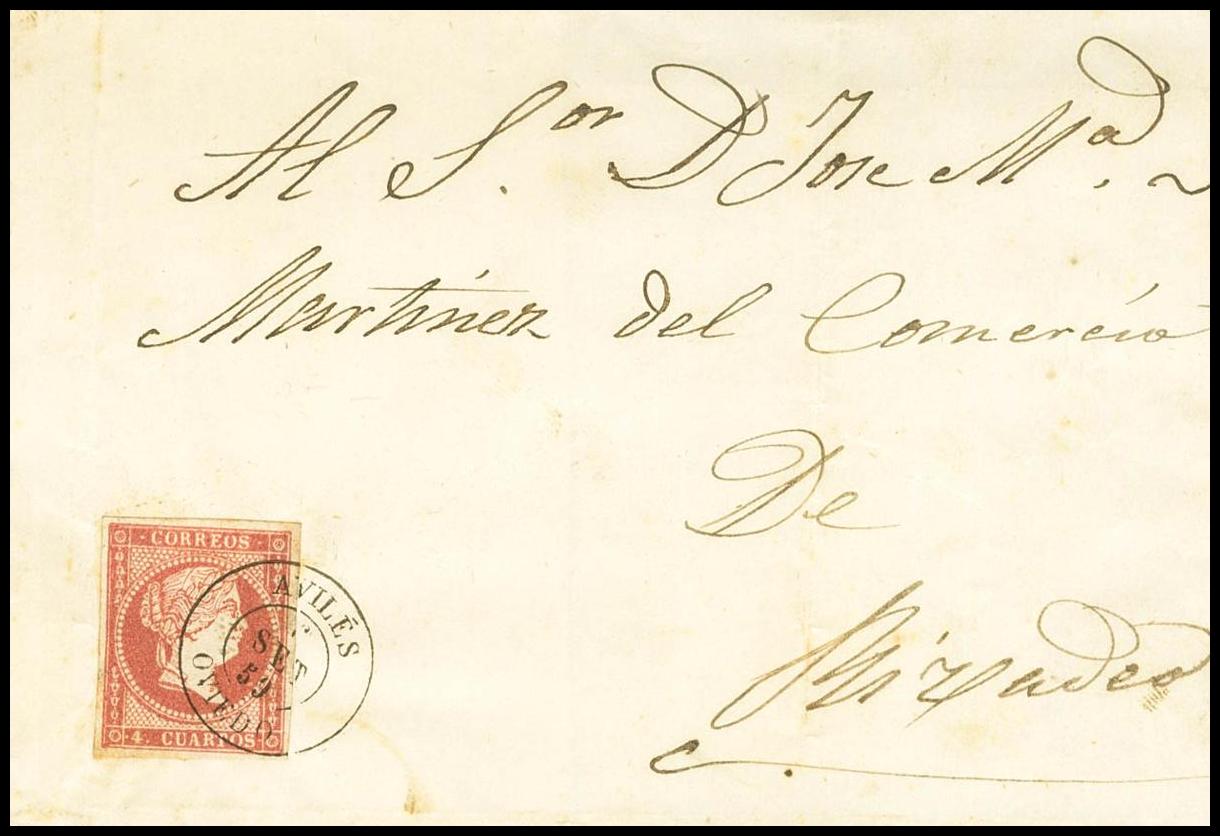 Al S.or D Jose Mª.
Martinez del Comercio
De
Rivadeo
CORREOS
4 CUARTOS
AVILÉS
SET
59
OVIEDO